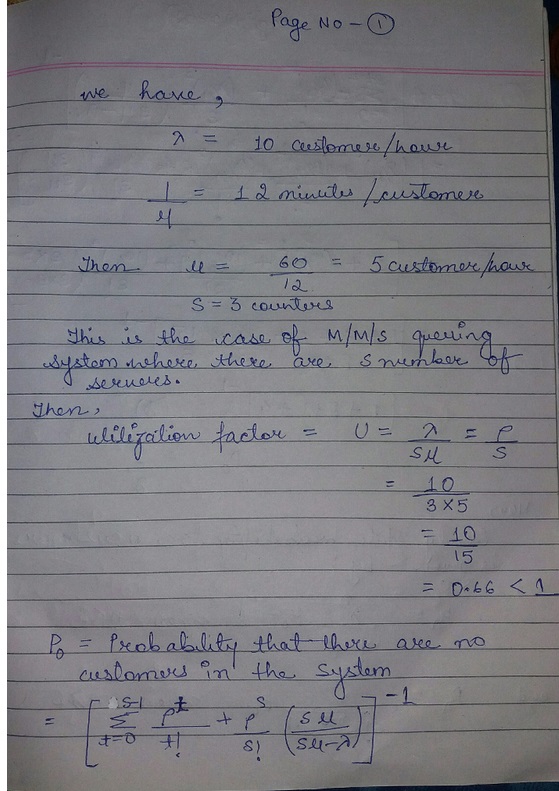 Page No - ①
we have,
λ = 10 customer/hour
1/μ = 12 minutes/customer
Then μ = 60/12 = 5 customer/hour
S = 3 counters
This is the case of M/M/S queuing
system where there are s number of
servers.
Then,
utilization factor = U = λ/sμ = ρ/s
= 10/3×5
= 10/15
= 0.66 < 1
P₀ = Probability that there are no
customers in the system
= [ Σ_{t=0}^{s-1} ρ^t/t! + ρ^s/s! (sμ/(sμ-λ)) ]^{-1}